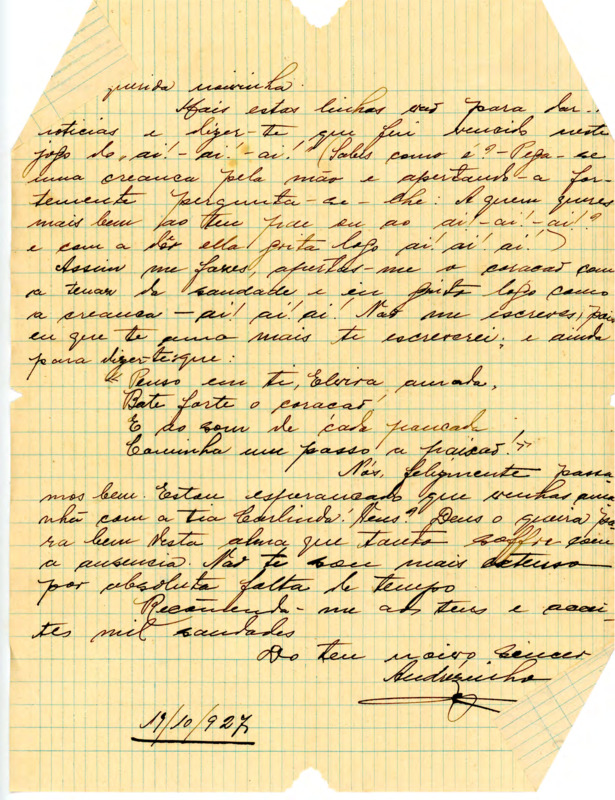 querida noivinha.
Mais estas linhas vão para dar-
noticias e dizer-te que fui vencido neste
jogo do, ai! - ai! - ai! (Sabes como é? - Pega-se
uma creança pela mão e apertando-a for-
temente pergunta-se-lhe: A quem queres
mais bem ao teu pae ou ao ai! - ai! - ai!?
e com a dôr ella grita logo ai! ai! ai!)
Assim me fazes, apertas-me o coração com
a tenaz da saudade e eu grito logo como
a creança - ai! ai! ai! Não me escreves, pois
eu que te amo mais te escreverei, e ainda
para dizer-te que:
"Penso em ti, Elvira amada,
Bate forte o coração,
E ao som de cada pancada
Caminha um passo a paixão!"
Nós, felizmente passa-
mos bem. Estou esperançado que venhas ama-
nhã com a tia Carlinda! Vens? Deus o queira pa-
ra bem desta alma que tanto soffre com
a ausencia. Não te sou mais extenso
por absoluta falta de tempo
Recomenda-me aos teus e accei-
tes mil saudades
Do teu noivo sincer
Andrézinho
19/10/927